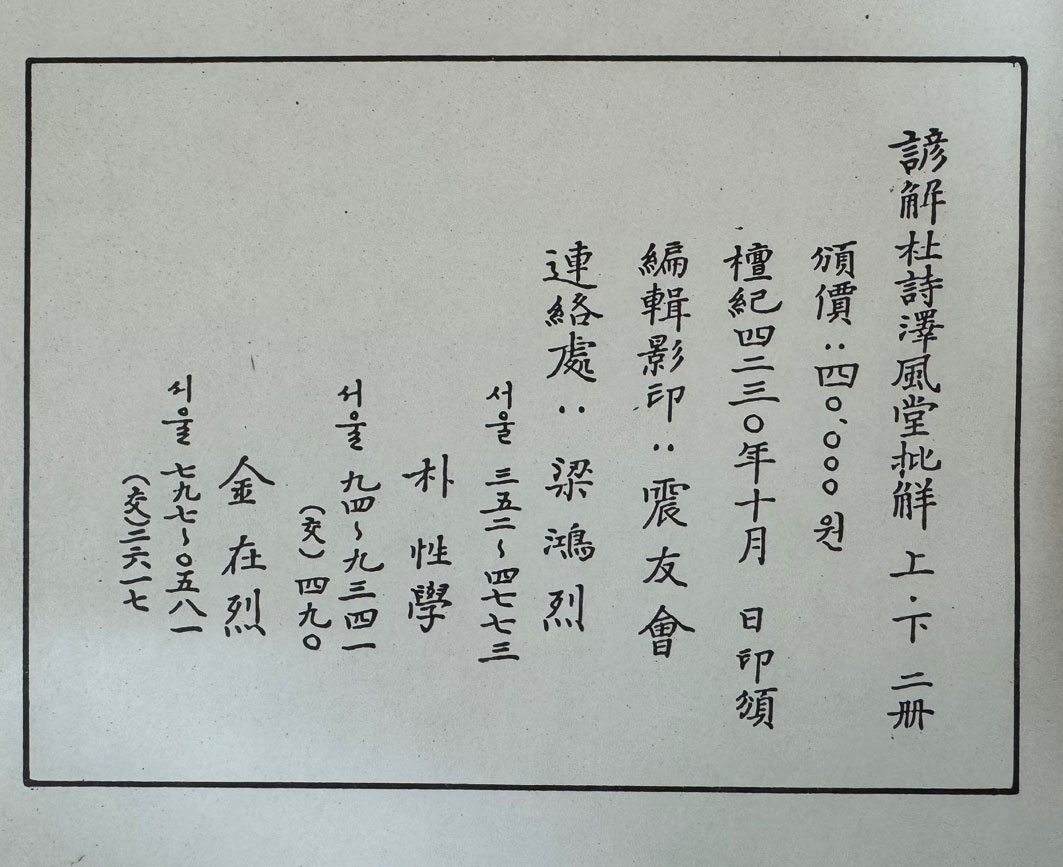 諺解杜詩澤風堂批解 上·下 二册
頒價:四〇、〇〇〇원
檀紀四二三〇年十月 日印頒
編輯影印:震友會
連絡處: 梁鴻烈
서울 三五二~四七七三
朴性學
서울 九四~九三四一
(交)四九〇
金在烈
서울 七九七~〇五八一
(交)二六一七